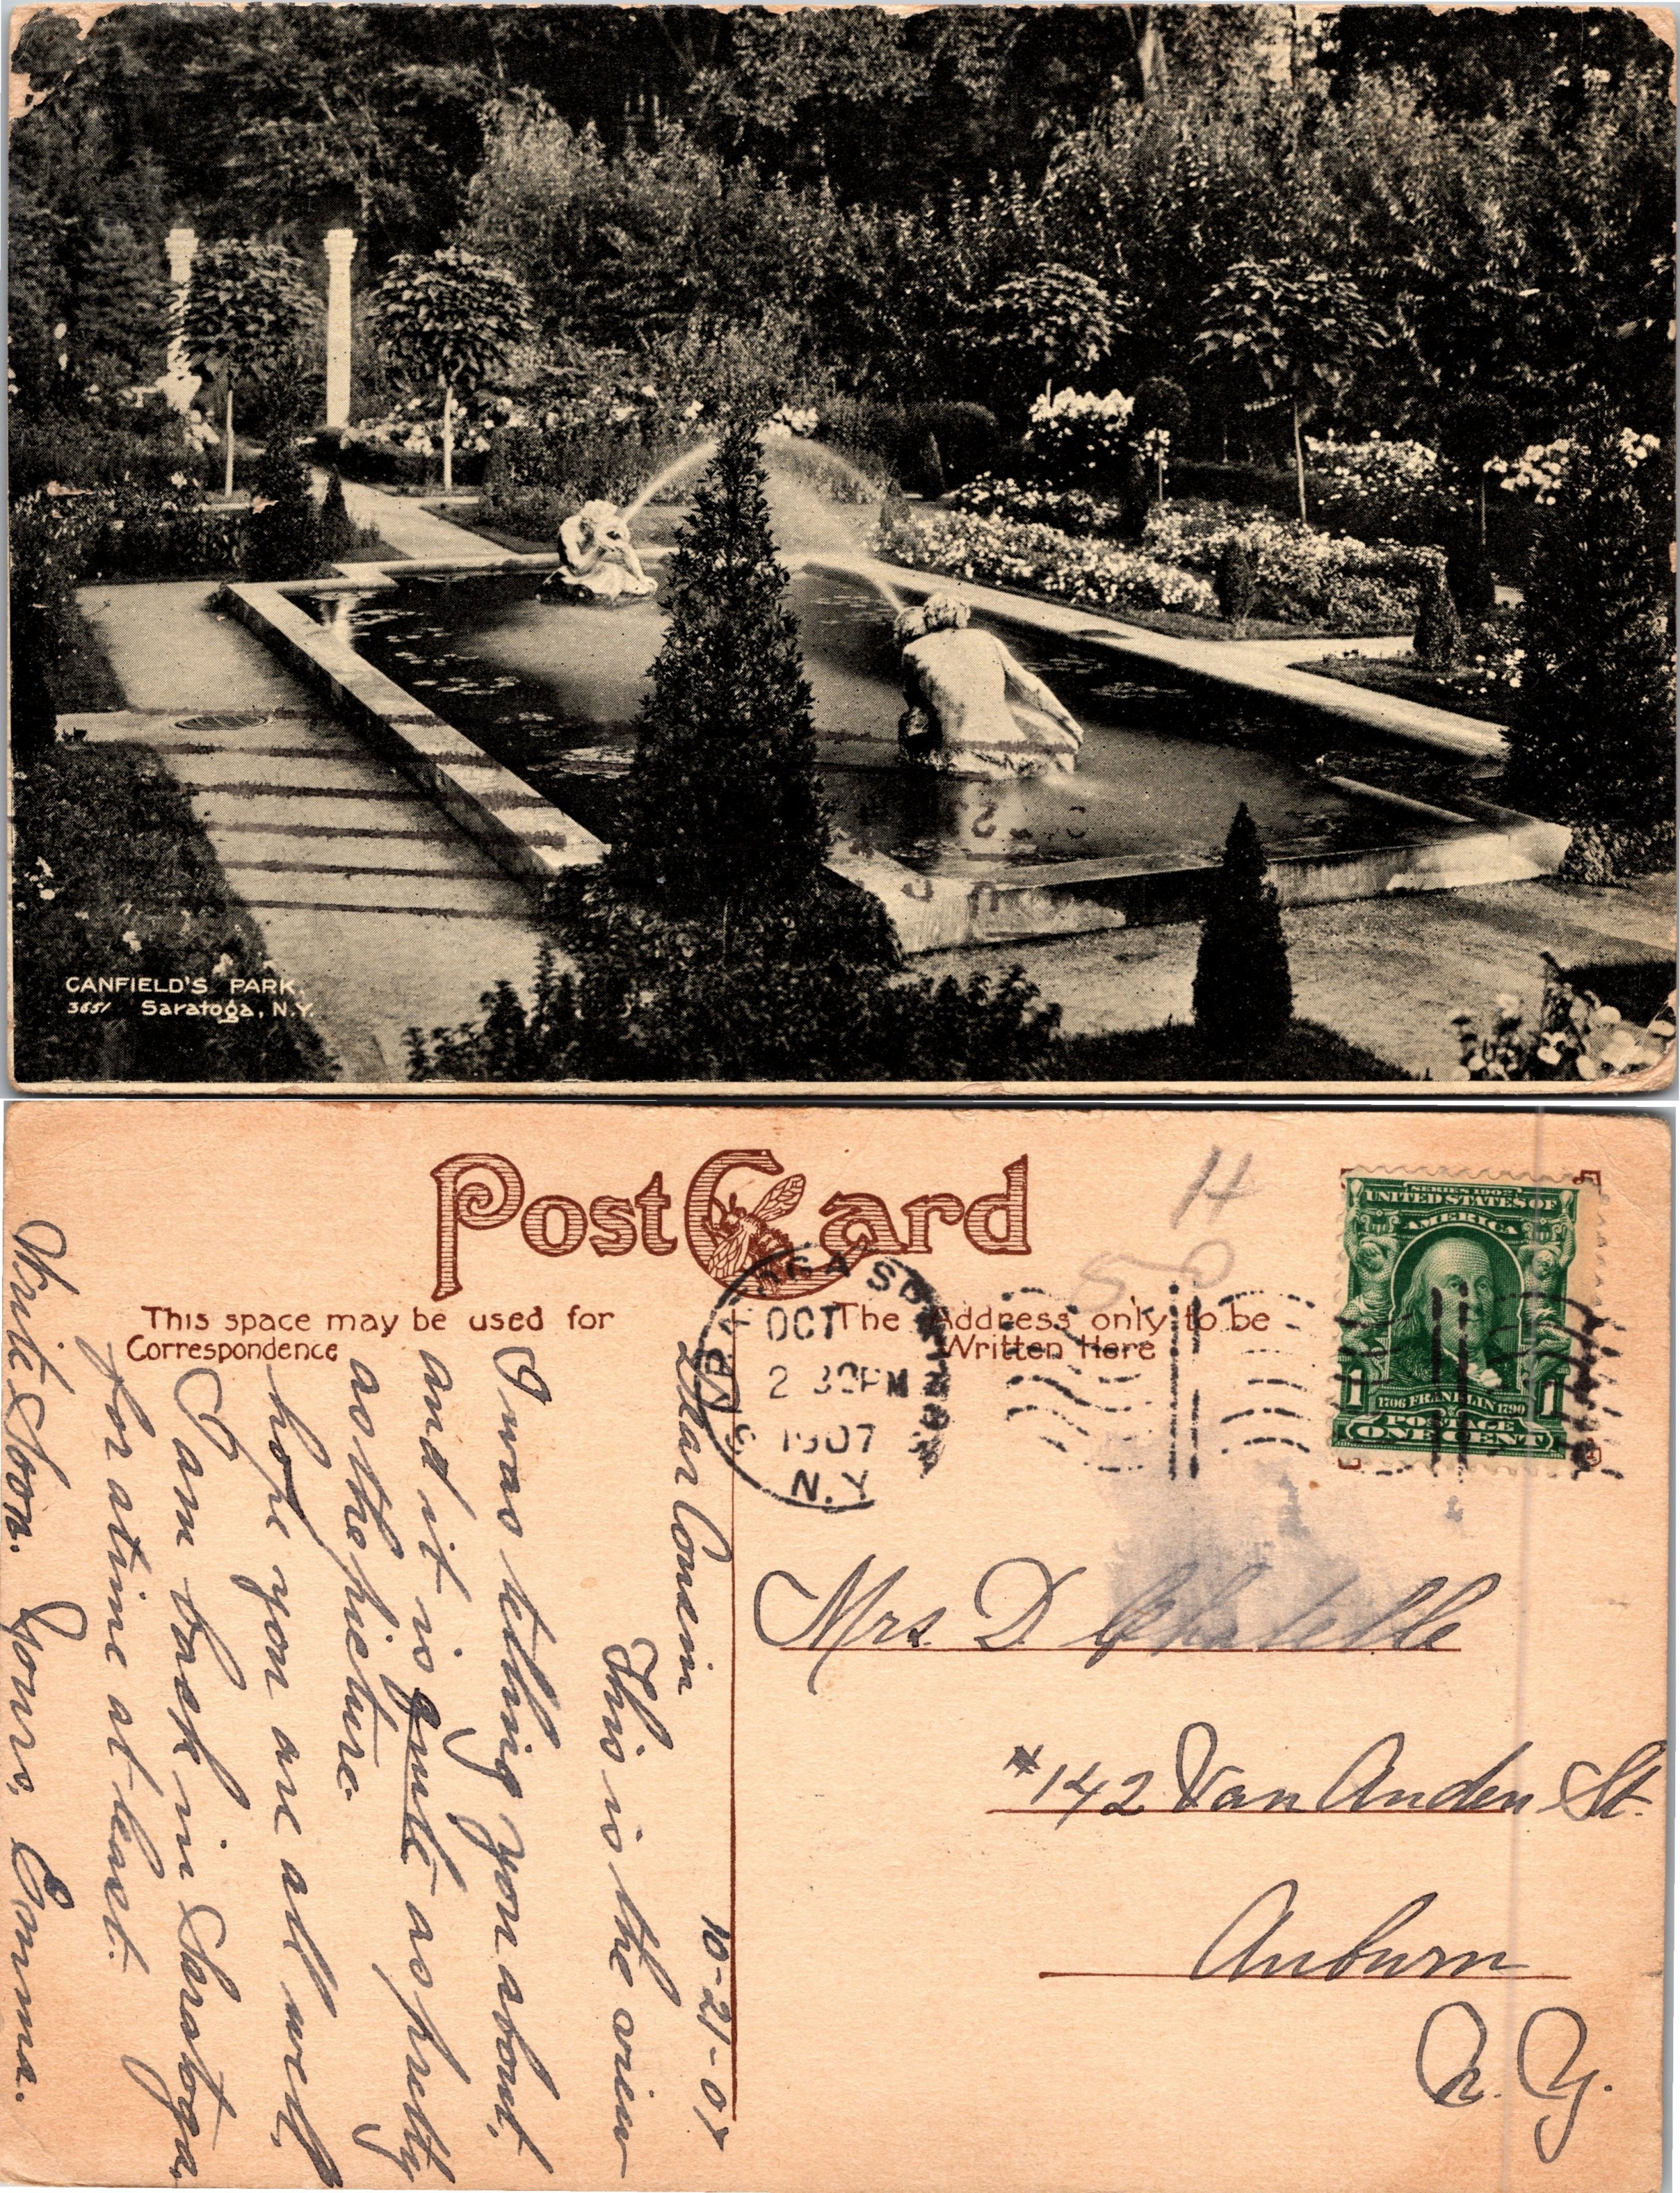 CANFIELD'S PARK.
3651 Saratoga, N.Y.
Post Card
This space may be used for
Correspondence
The Address only to be
Written Here
H
50
OCT
2 30PM
1907
N.Y.
SERIES 1902
UNITED STATES OF
AMERICA
1706 FRANKLIN 1790
1 1
POSTAGE
ONE CENT
10-21-07
Dear Cousin
This is the view
I was telling you about,
and it is quite as pretty
as the picture.
hope you are all well,
I am back in Saratoga,
for a time at least.
Write Soon. Yours, Emma.
Mrs. D.
#142 Van Anden St.
Auburn
N.Y.